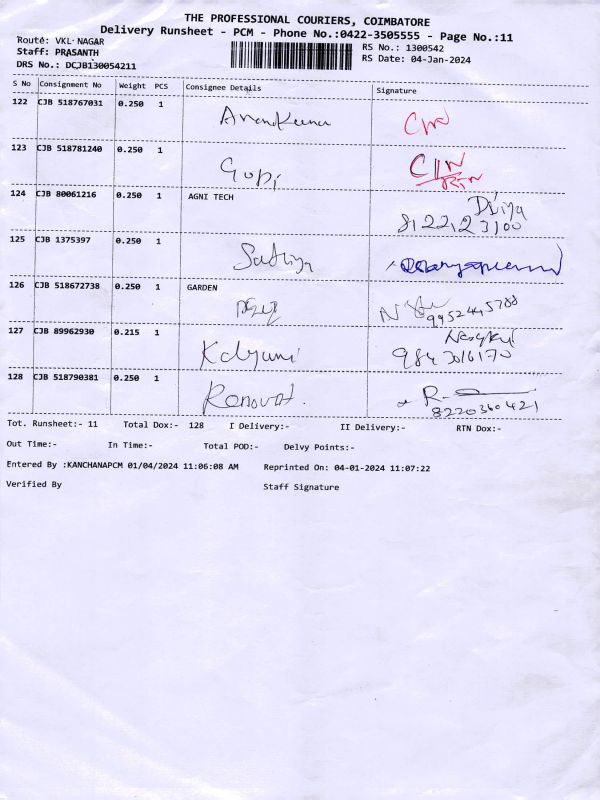 THE PROFESSIONAL COURIERS, COIMBATORE
Delivery Runsheet - PCM - Phone No.:0422-3505555 - Page No.:11
Route: VKL-NAGAR
RS No.: 1300542
Staff: PRASANTH
RS Date: 04-Jan-2024
DRS No.: DCJB130054211
S No Consignment No Weight PCS Consignee Details Signature
122 CJB 518767031 0.250 1
123 CJB 518781240 0.250 1 Gopi
124 CJB 80061216 0.250 1 AGNI TECH
Divya
125 CJB 1375397 0.250 1 Sathiya
126 CJB 518672738 0.250 1 GARDEN
127 CJB 89962930 0.215 1 Kalyani
128 CJB 518790381 0.250 1 Renovat.
8220360421
Tot. Runsheet:- 11 Total Dox:- 128 I Delivery:- II Delivery:- RTN Dox:-
Out Time:- In Time:- Total POD:- Delvy Points:-
Entered By :KANCHANAPCM 01/04/2024 11:06:08 AM Reprinted On: 04-01-2024 11:07:22
Verified By Staff Signature